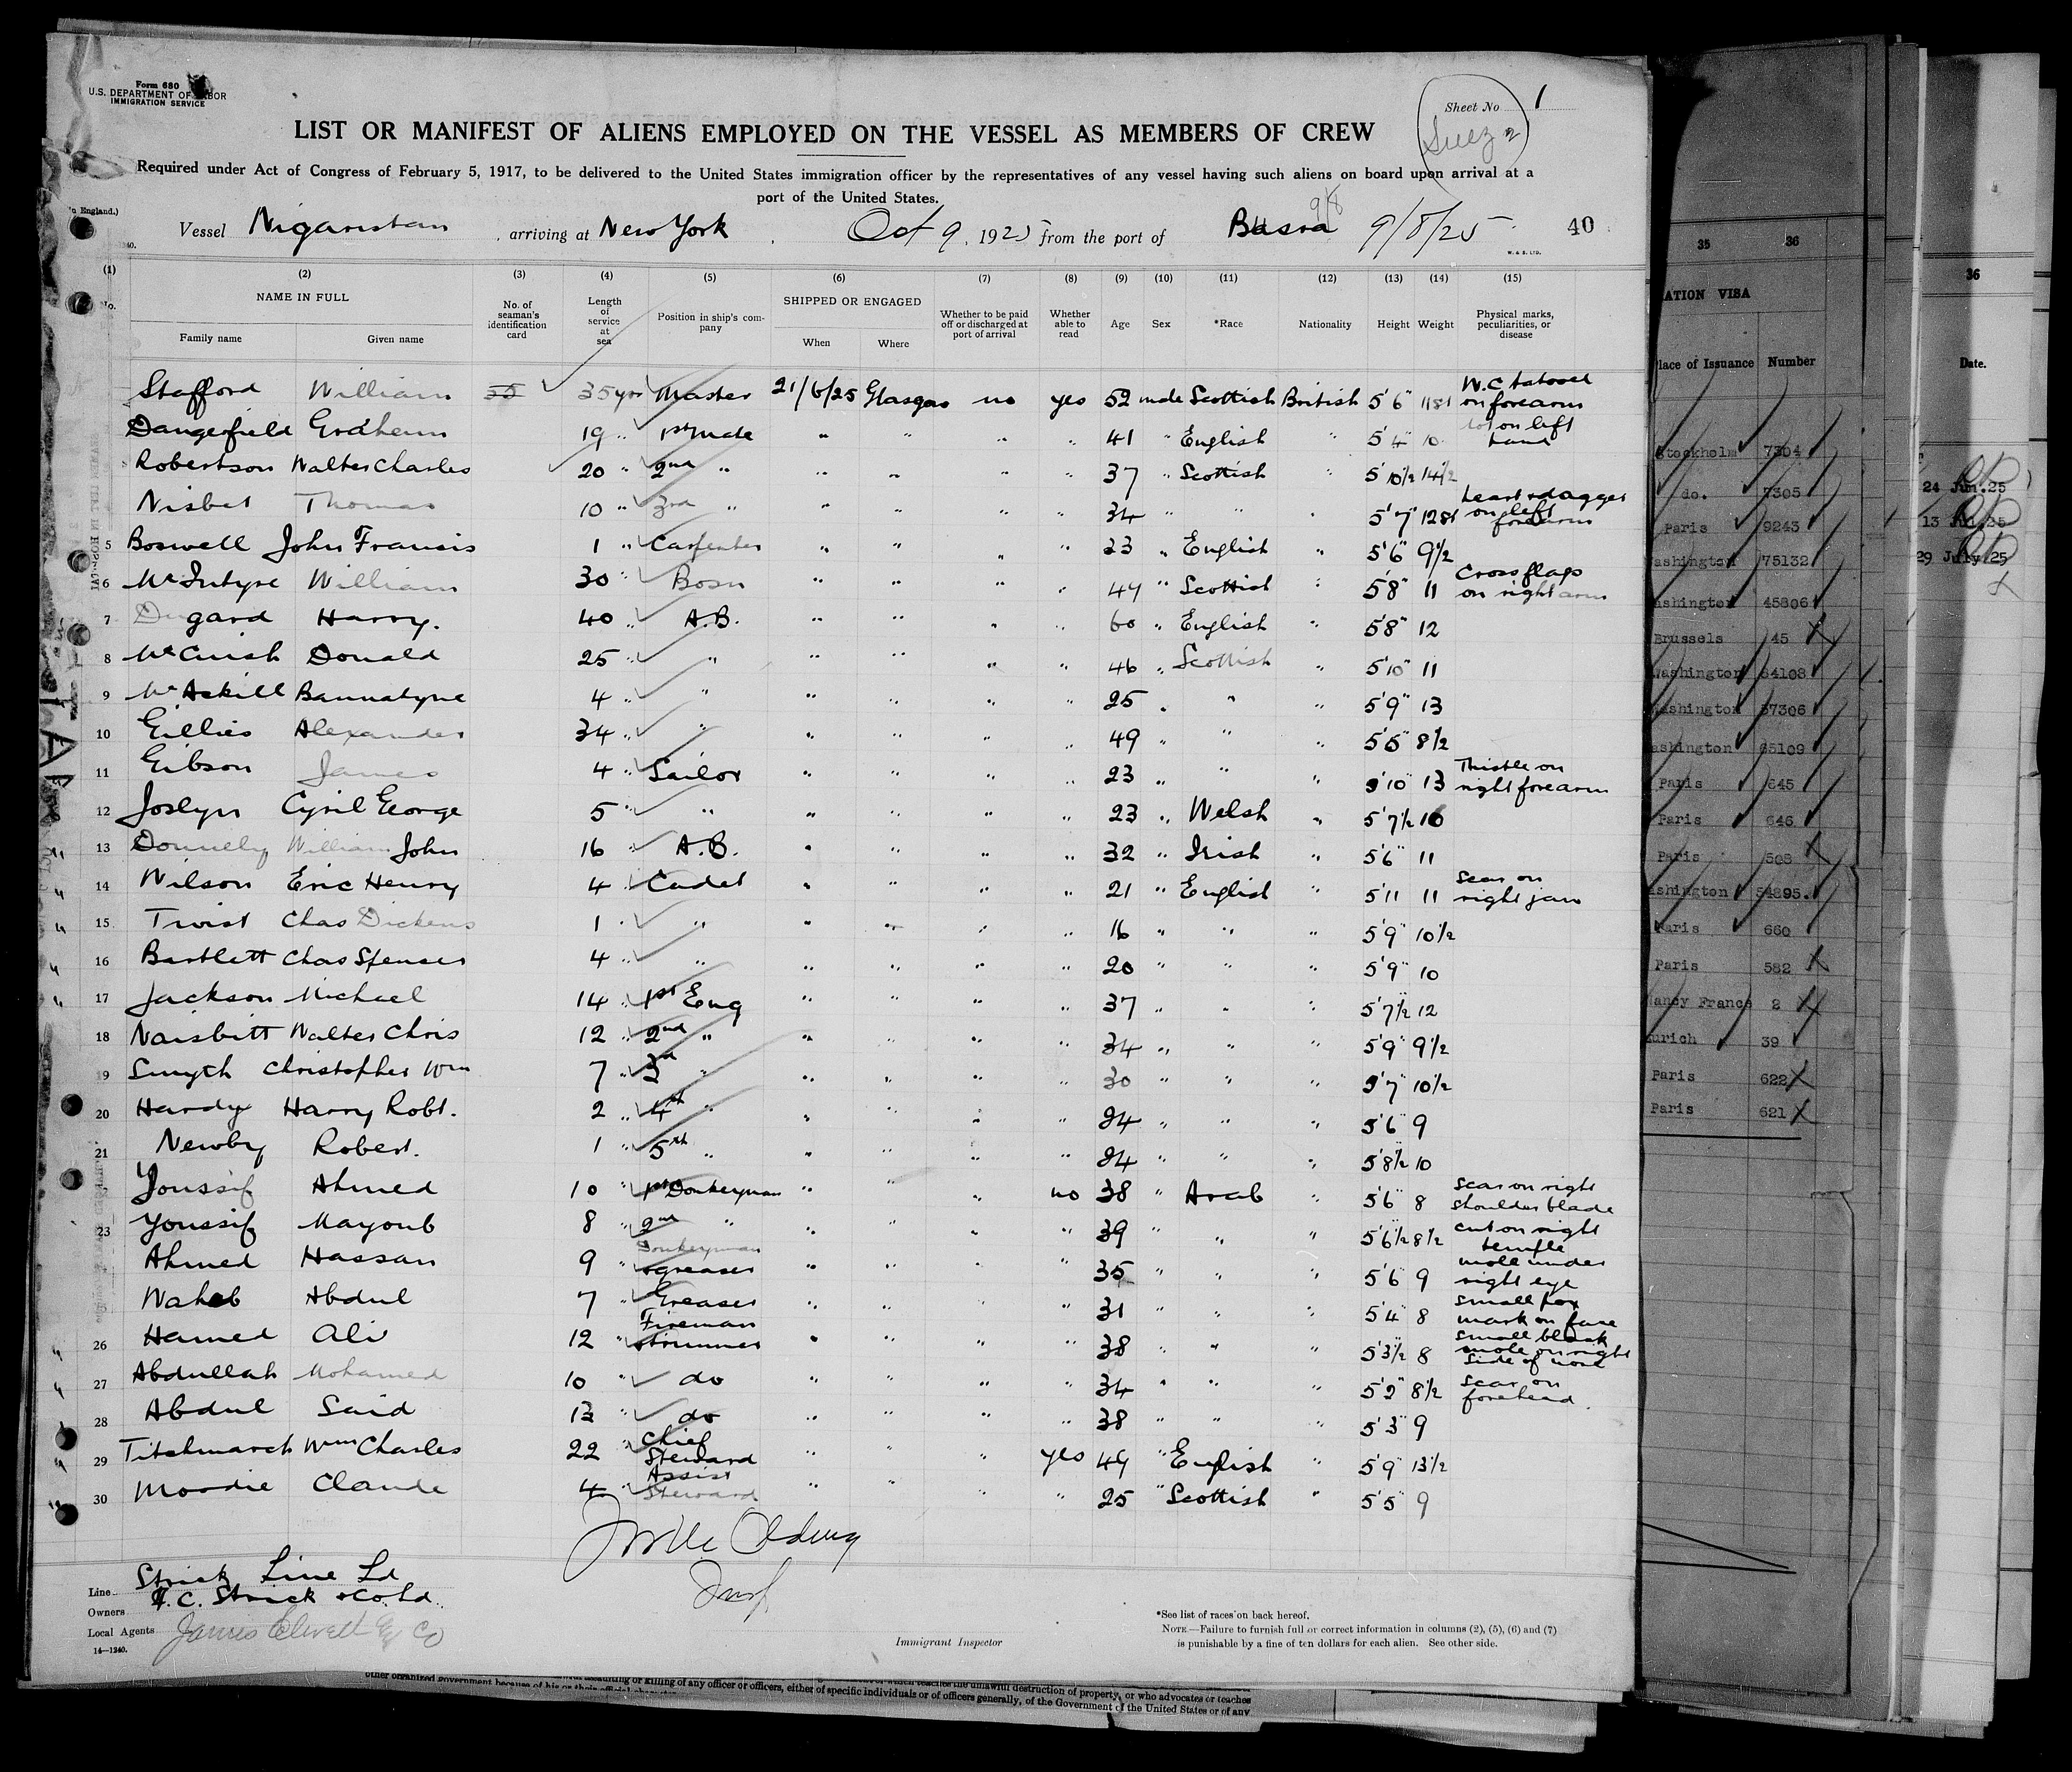 Form 680
U.S. DEPARTMENT OF LABOR
IMMIGRATION SERVICE
Sheet No 1
Suez
LIST OR MANIFEST OF ALIENS EMPLOYED ON THE VESSEL AS MEMBERS OF CREW
Required under Act of Congress of February 5, 1917, to be delivered to the United States immigration officer by the representatives of any vessel having such aliens on board upon arrival at a
port of the United States.
Vessel Nigaristan, arriving at New York, Oct 9, 1925 from the port of Basra 9/8/25 40
9/8
(1) (2) (3) (4) (5) (6) (7) (8) (9) (10) (11) (12) (13) (14) (15)
No. NAME IN FULL Family name Given name No. of seaman's identification card Length of service at sea Position in ship's company SHIPPED OR ENGAGED When Where Whether to be paid off or discharged at port of arrival Whether able to read Age Sex *Race Nationality Height Weight Physical marks, peculiarities, or disease
Stafford William 35 35 yrs Master 21/6/25 Glasgow no yes 52 male Scottish British 5'6" W.C tatooed on forearm
Dangerfield Graham 19 " 1st Mate " " " " 41 " English " 5'4" 10 on left hand
Robertson Walter Charles 20 " 2nd " " " " " 37 " Scottish " 5'10½ 14½
Nisbet Thomas 10 " 3rd " " " " " 34 " " " 5'7" heart & dagger on left forearm
5 Boswell John Francis 1 " Carpenter " " " " 23 " English " 5'6" 9½
6 McIntyre William 30 " Bosn " " " " 49 " Scottish " 5'8" 11 Cross flags on right arm
7 Dugard Harry. 40 " A.B. " " " " 60 " English " 5'8" 12
8 McCuish Donald 25 " " " " " " 46 " Scottish " 5'10" 11
9 McAskill Bannatyne 4 " " " " " " 25 " " " 5'9" 13
10 Gillies Alexander 34 " " " " " " 49 " " " 5'5" 8½
11 Gibson James 4 " Sailor " " " " 23 " " " 5'10" 13 Thistle on right forearm
12 Joslyn Cyril George 5 " " " " " " 23 " Welsh " 5'7½ 10
13 Donnelly William John 16 " A.B. " " " " 32 " Irish " 5'6" 11
14 Wilson Eric Henry 4 " Cadet " " " " 21 " English " 5'11 11 scar on right jaw
15 Twist Chas Dickens 1 " " " " " " 16 " " " 5'9" 10½
16 Bartlett Chas Spenser 4 " " " " " " 20 " " " 5'9" 10
17 Jackson Michael 14 " 1st Eng " " " " 37 " " " 5'7½ 12
18 Naisbitt Walter Chris 12 " 2nd " " " " " 34 " " " 5'9" 9½
19 Smyth Christopher Wm 7 " 3rd " " " " " 30 " " " 5'7" 10½
20 Hardy Harry Robt. 2 " 4th " " " " " 24 " " " 5'6" 9
21 Newby Robert. 1 " 5th " " " " " 24 " " " 5'8½ 10
Youssif Ahmed 10 " 1st Donkeyman " " " no 38 " Arab " 5'6" 8 scar on right shoulder blade
23 Youssif Mayoub 8 " 2nd " " " " " 39 " " " 5'6½ 8½ cut on right temple
Ahmed Hassan 9 " Donkeyman & greaser " " " " 35 " " " 5'6" 9 mole under right eye
Waheb Abdul 7 " Greaser " " " " 31 " " " 5'4" 8 small pox mark on face
26 Hamed Ali 12 " Fireman & trimmer " " " " 38 " " " 5'3½ 8 small black mole on right side of nose
27 Abdullah Mohamed 10 " do " " " " 34 " " " 5'2" 8½ scar on forehead.
28 Abdul Said 13 " do " " " " 38 " " " 5'3" 9
29 Titchmarch Wm Charles 22 " Chief Steward " " " yes 49 " English " 5'9" 13½
30 Moodie Claude 4 " Assist Steward " " " " 25 " Scottish " 5'5" 9
Line Strick Line Ld
Owners F.C. Strick & Co Ld.
Local Agents James Elwell & Co
14—1240.
Immigrant Inspector
*See list of races on back hereof.
NOTE.—Failure to furnish full or correct information in columns (2), (5), (6) and (7)
is punishable by a fine of ten dollars for each alien. See other side.
35 36
ATION VISA
Place of Issuance Number
Stockholm 7304
do. 7305
Paris 9243
Washington 75132
Washington 45806
Brussels 45
Washington 64108
Washington 67306
Washington 65109
Paris 645
Paris 646
Paris 503
Washington 54895
Paris 660
Paris 582
Nancy France 2
Zurich 39
Paris 622
Paris 621
36
Date.
24 Jun.25
13 Jul.25
29 July/25
other organized government because of his or their official character
killing of any officer or officers, either of specific individuals or of officers generally, of the Government of the United States or of any
the unlawful destruction of property, or who advocates or teaches